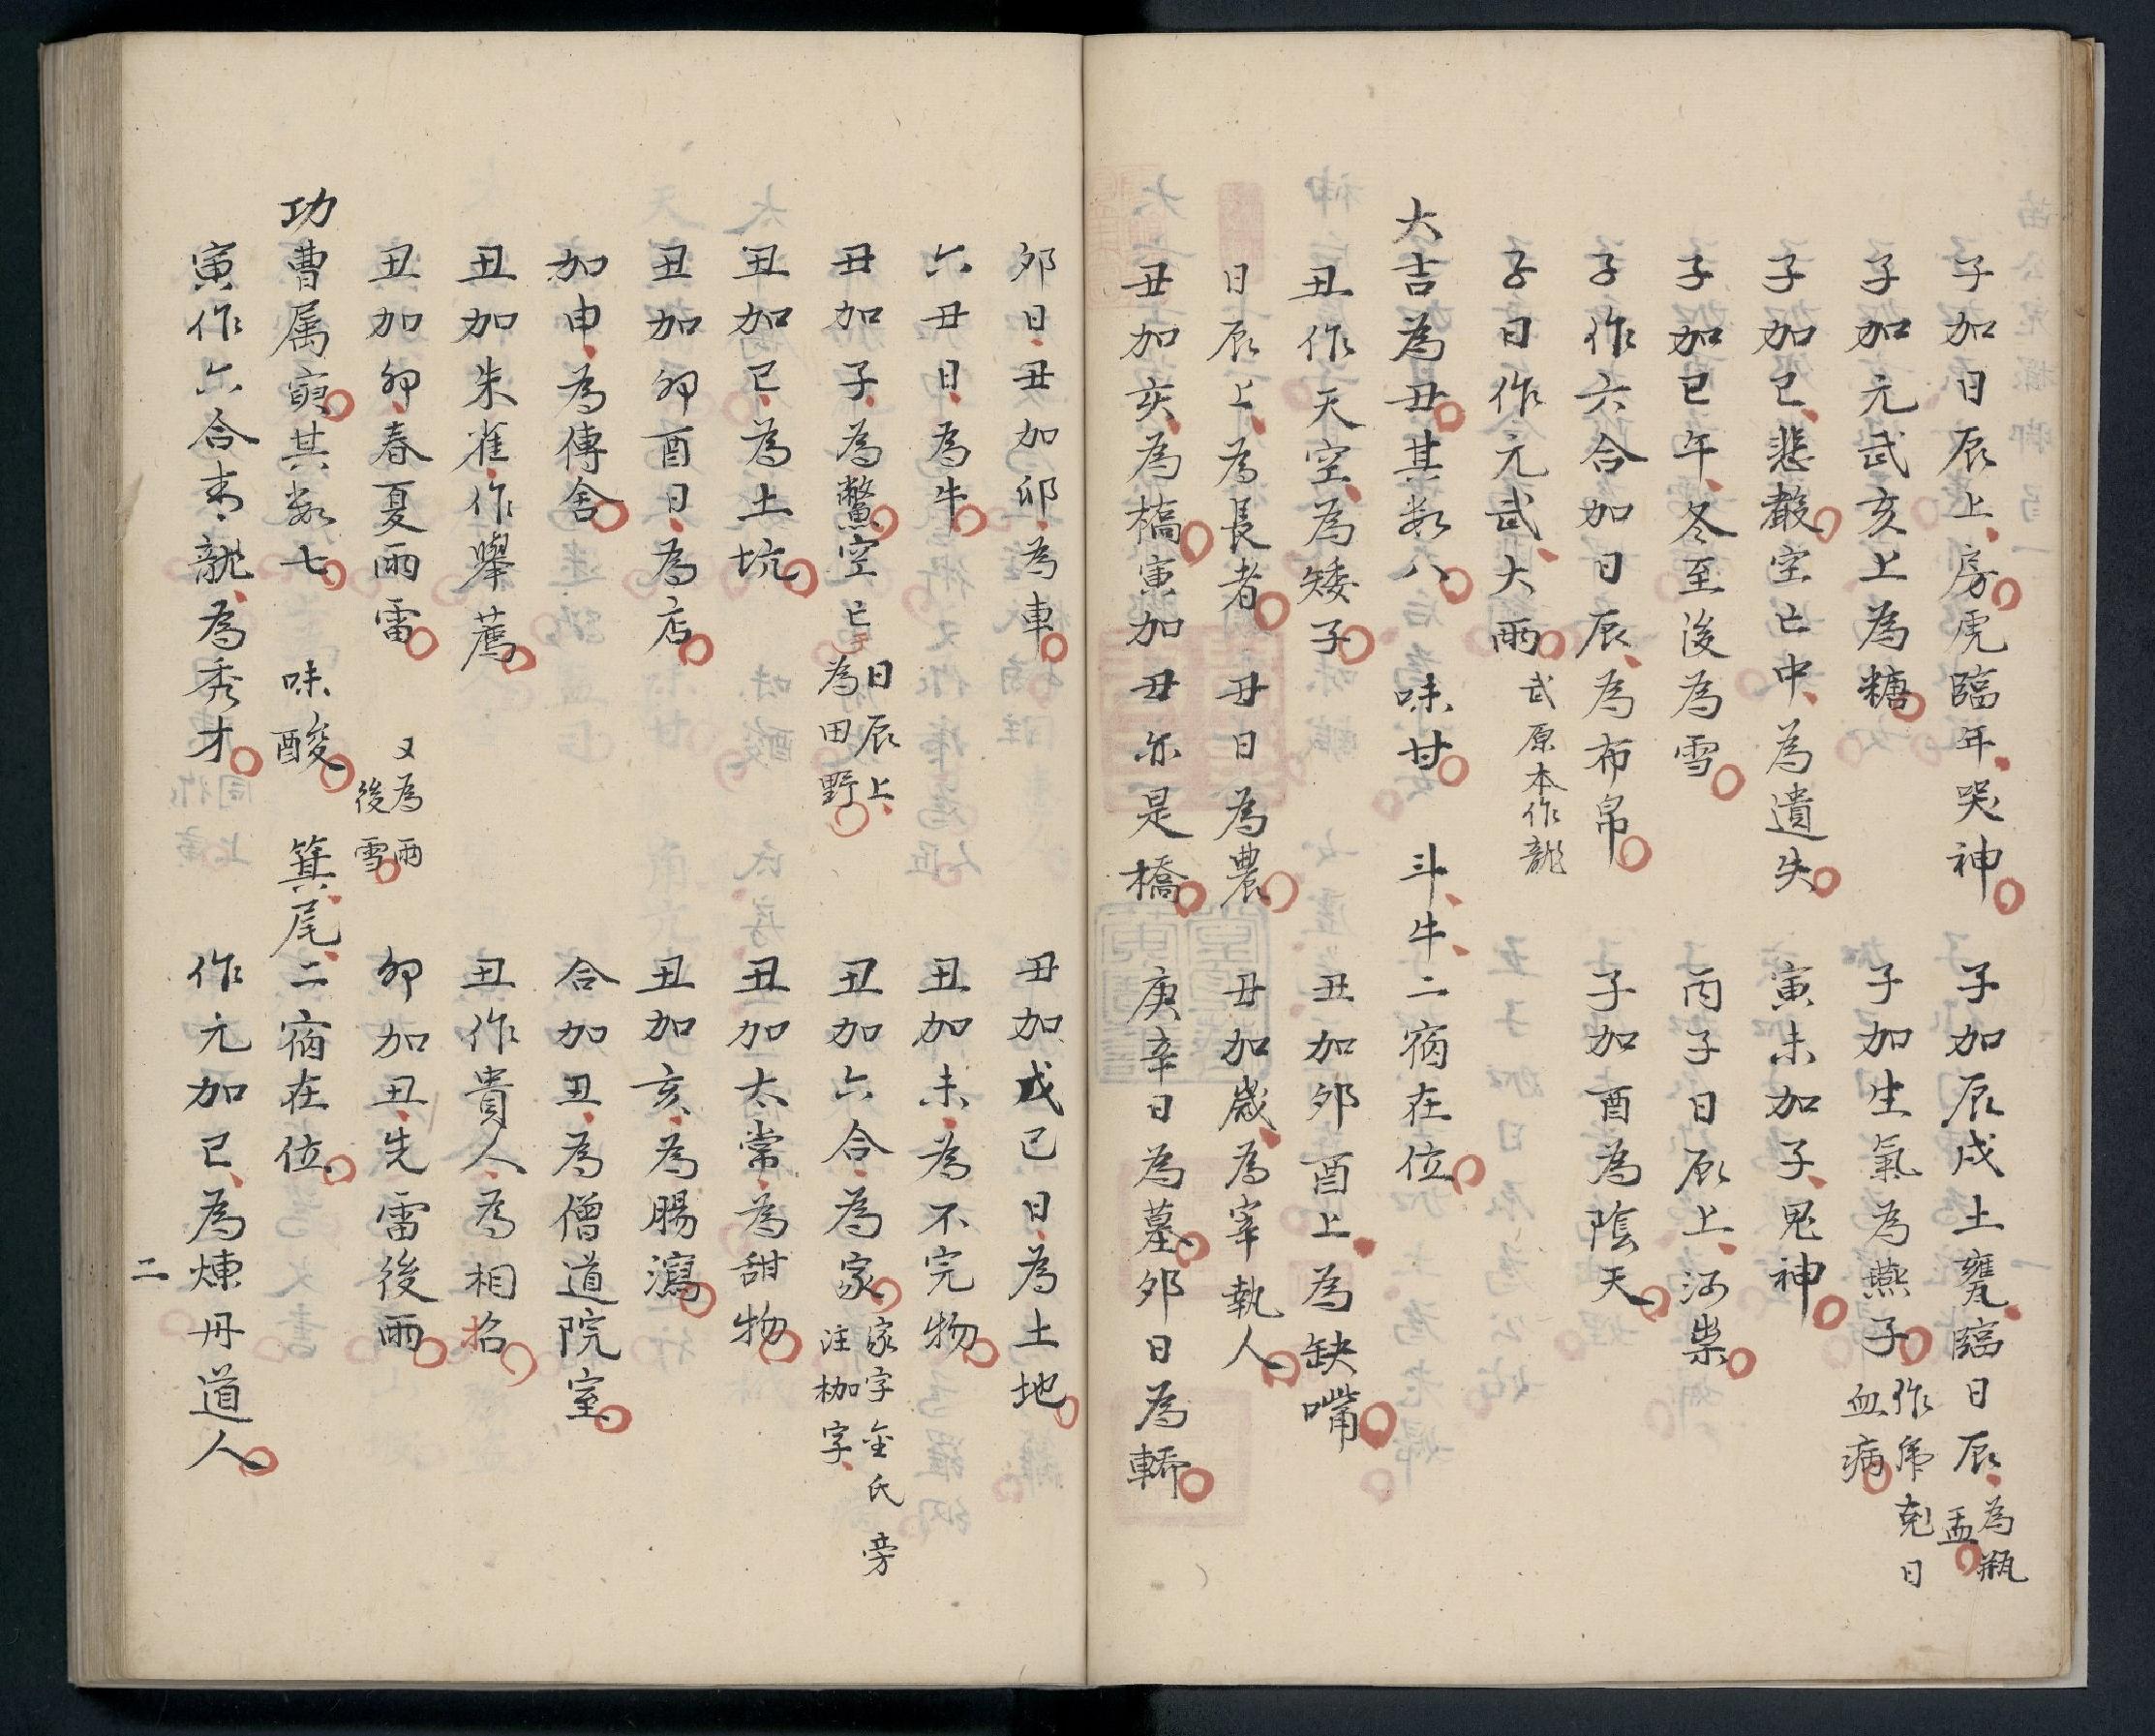 子加日辰上房虎臨年哭神 子加辰戌土甕臨日辰為瓶盂
子加元武亥上為糖 子加生氣為燕子作席克日血病
子加巳悲聲空亡中為遺失 寅未加子鬼神
子加巳午冬至後為雪 丙子日辰上河祟
子作六合加日辰為布帛 子加酉為陰天
子日作元武大雨武原本作龍
大吉為丑其数八 味甘 斗牛二宿在位
丑作天空為矮子 丑加夘酉上為缺嘴
日辰上為長者丑日為農 丑加歲為宰執人
丑加亥為橋寅加丑亦是橋 庚辛日為墓夘日為轎
夘日丑加卯為車 丑加戌己日為土地
六丑日為牛 丑加未為不完物
丑加子為鱉空亡日辰上為田野 丑加六合為家家字金氏旁注枷字
丑加巳為土坑 丑加太常為甜物
丑加卯酉日為店 丑加亥為腸瀉
加申為傳舍 合加丑為僧道院室
丑加朱雀作舉薦 丑作貴人為相招
丑加卯春夏雨雷又為雨後雪 卯加丑先雷後雨
功曹属寅其数七 味酸 箕尾二宿在位
寅作六合青龍為秀才 作元加巳為煉丹道人
二